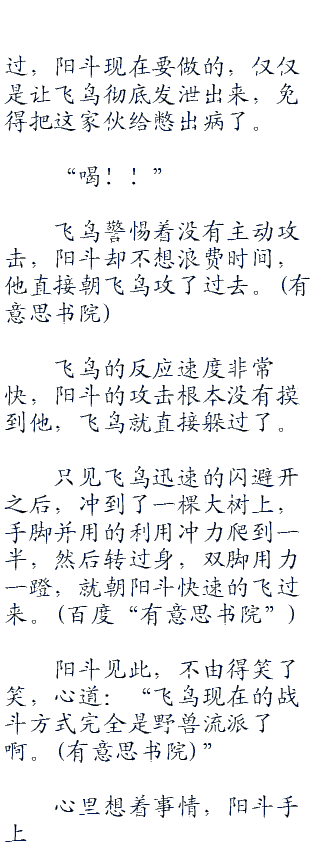 过，阳斗现在要做的，仅仅
是让飞鸟彻底发泄出来，免
得把这家伙给憋出病了。
“喝！！”
飞鸟警惕着没有主动攻
击，阳斗却不想浪费时间，
他直接朝飞鸟攻了过去。(有
意思书院)
飞鸟的反应速度非常
快，阳斗的攻击根本没有摸
到他，飞鸟就直接躲过了。
只见飞鸟迅速的闪避开
之后，冲到了一棵大树上，
手脚并用的利用冲力爬到一
半，然后转过身，双脚用力
一蹬，就朝阳斗快速的飞过
来。(百度“有意思书院”)
阳斗见此，不由得笑了
笑，心道：“飞鸟现在的战
斗方式完全是野兽流派了
啊。(有意思书院)”
心里想着事情，阳斗手
上